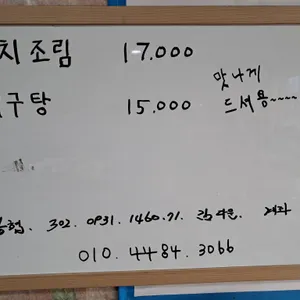 치조림 17.000
구탕 15.000
맛나게
드셔용~~~~
302.0931.1460.71.
010.4484.3066